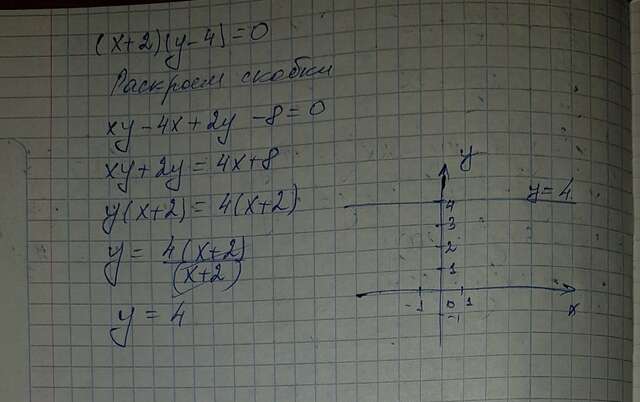 (x+2)(y-4)=0
Раскроем скобки
xy-4x+2y-8=0
xy+2y=4x+8
y(x+2)=4(x+2)
y=4(x+2)/(x+2)
y=4
y
y=4
4
3
2
1
-1 0 1
x
-1